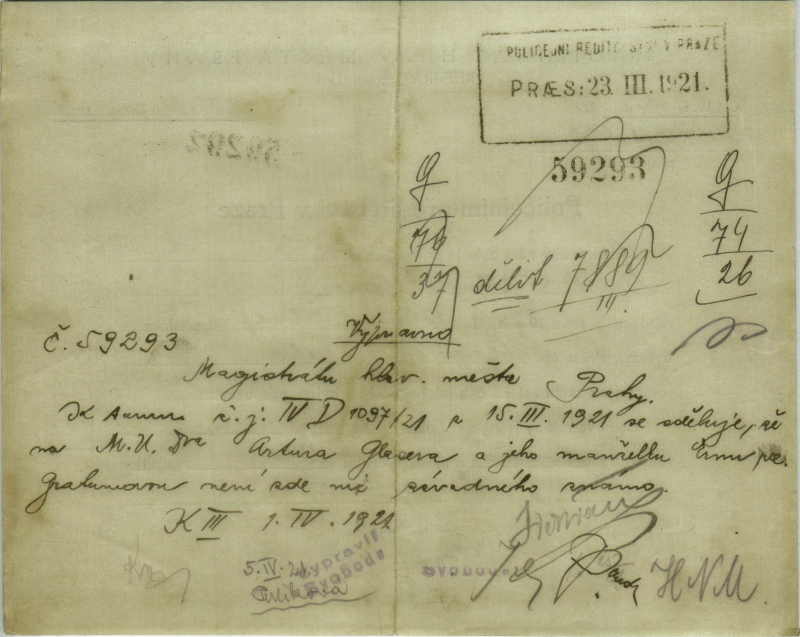 POLICEJNÍ ŘEDITELSTVÍ V PRAZE
PRÆS: 23. III. 1921.
59293
G
74
37
dělit 7889
III.
G
74
26
Č. 59293
Výpravno
Magistrátu hlav. města Prahy.
K č. j. IV D 1097/21 z 15. III. 1921 se sděluje, že
na M. U. Dra Artura Glasera a jeho manželku Ernu roz.
není zde nic závadného známo.
K III 1. IV. 1921
5. IV. 21
Vypravil
Svoboda
H N M